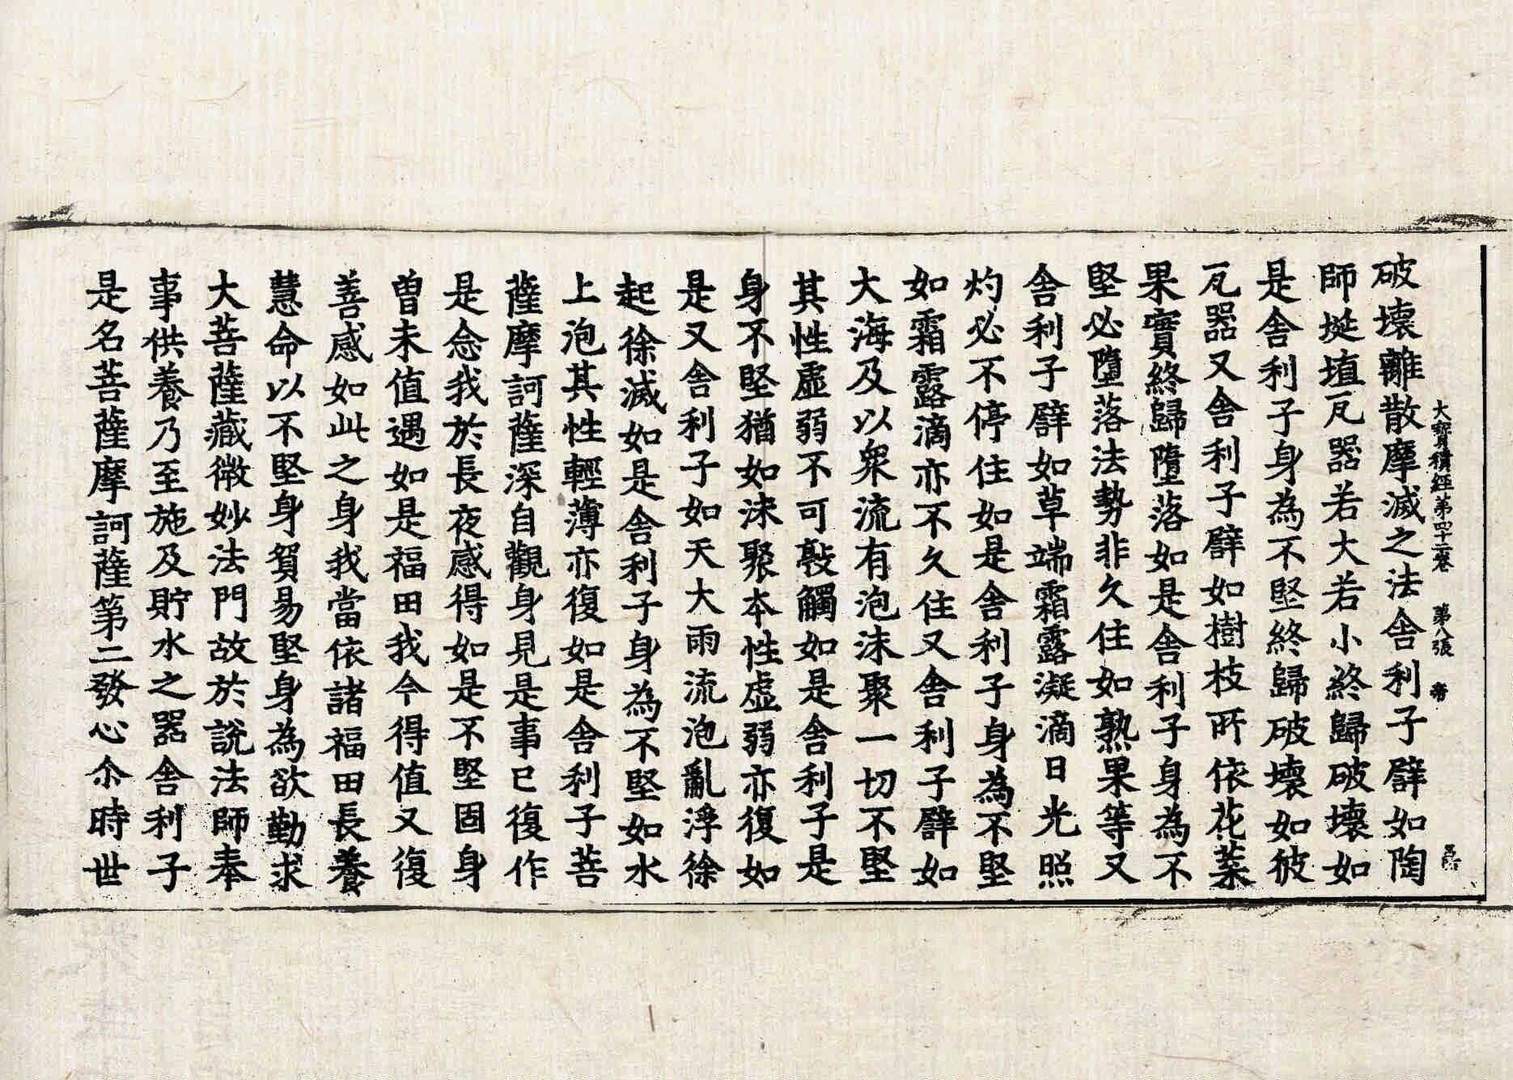 大寶積經第四十二卷　第八張　帝
破壞離散摩滅之法舍利子譬如陶
師埏埴瓦器若大若小終歸破壞如
是舍利子身為不堅終歸破壞如彼
瓦器又舍利子譬如樹枝所依花葉
果實終歸墮落如是舍利子身為不
堅必墮落法勢非久住如熟果等又
舍利子譬如草端霜露凝滴日光照
灼必不停住如是舍利子身為不堅
如霜露滴亦不久住又舍利子譬如
大海及以衆流有泡沫聚一切不堅
其性虛弱不可敲觸如是舍利子是
身不堅猶如沫聚本性虛弱亦復如
是又舍利子如天大雨流泡亂浮徐
起徐滅如是舍利子身為不堅如水
上泡其性輕薄亦復如是舍利子菩
薩摩訶薩深自觀身見是事已復作
是念我於長夜感得如是不堅固身
曾未值遇如是福田我今得值又復
善感如此之身我當依諸福田長養
慧命以不堅身貿易堅身為欲勤求
大菩薩藏微妙法門故於說法師奉
事供養乃至施及貯水之器舍利子
是名菩薩摩訶薩第二發心尒時世